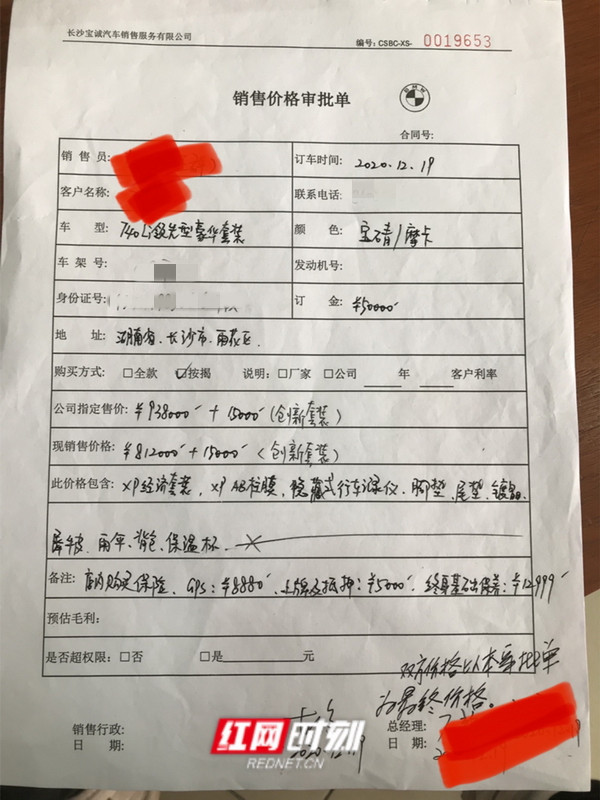 长沙宝诚汽车销售服务有限公司
编号: CSBC-XS- 0019653
销售价格审批单
合同号:
销售员: 订车时间: 2020.12.19
客户名称: 联系电话:
车型: 740Li领先型豪华套装 颜色: 宝石青/摩卡
车架号: 发动机号:
身份证号: 订金: ¥50000
地址: 湖南省、长沙市、雨花区
购买方式: □全款 ☑按揭 说明: □厂家 □公司 年 客户利率
公司指定售价: ¥938000 + 15000 (创新套装)
现销售价格: ¥812000 + 15000 (创新套装)
此价格包含: XP经济套装、XP AB柱膜、隐藏式行车记录仪、脚垫、尾垫、镀晶、
犀牛皮、雨伞、背包、保温杯、
备注: 店内购买保险、GPS: ¥8880 上牌及抵押: ¥5000 终身基础保养: ¥12999
预估毛利:
是否超权限: □否 □是 元
双方价格以本审批单
为最终价格。
销售行政: 总经理:
日期: 2020.12.19 日期:
红网时刻
REDNET.CN